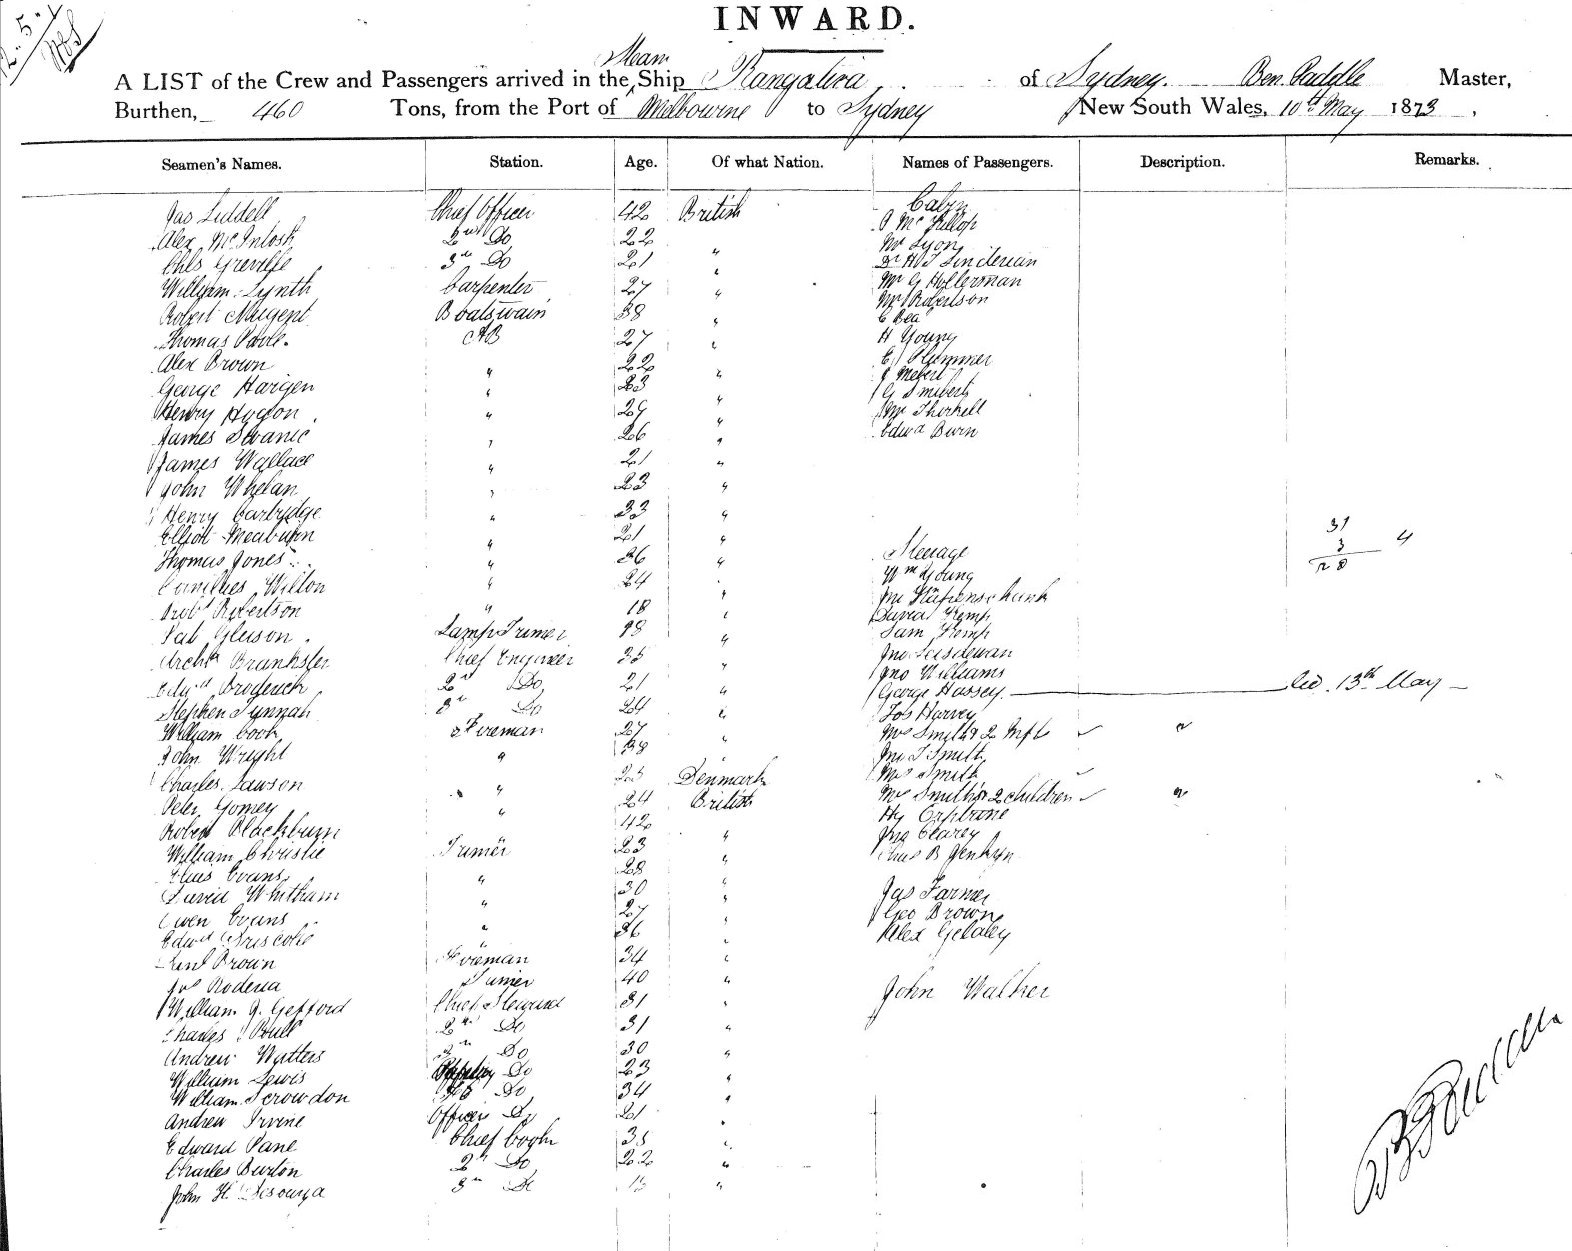 12.5.
INWARD.
A LIST of the Crew and Passengers arrived in the Steam Ship Rangatira of Sydney. Ben. Paddle Master,
Burthen, 460 Tons, from the Port of Melbourne to Sydney New South Wales, 10th May 1873.
Seamen's Names. Station. Age. Of what Nation. Names of Passengers. Description. Remarks.
Jas Liddell Chief Officer 42 British
Alex McIntosh 2nd Do 22 "
Chls Greville 3rd Do 21 "
William Lynth Carpenter 27 "
Robert Nugent Boatswain 38 "
Thomas Poole. AB 27 "
Alex Brown " 22 "
George Hargen " 23 "
Henry " 29 "
James " 26 "
James Wallace " 21 "
John Whelan " 23 "
Henry Carbridge " 33 "
Elliott Meaburn " 21 "
Thomas Jones " 36 "
Wilton " 24 "
Robt Robertson " 18 "
Pat Gleeson. Lamp Trimer 18 "
Archd Chief Engineer 35 "
Edwd Broderick 2nd Do 21 "
Stephen 3rd Do 24 "
William Cook Fireman 27 "
John Wright " 38 "
Charles Lawson " 25 Denmark
Peter Gomey " 24 British
Robert Blackburn 42 "
William Christie Trimer 23 "
Evans " 28 "
David Whitham " 30 "
Owen Evans " 27 "
Edwd Driscole " 36 "
Brown Fireman 34 "
Jos Rodena Trimer 40 "
William J. Gefford Chief Steward 31 "
Charles Poull 2nd Do 31 "
Andrew Watters 3rd Do 30 "
William Lewis Do 23 "
William Scrowdon Do 34 "
Andrew Irvine Officers Do 21 "
Edward Pane Chief Cook 35 "
Charles Burton 2nd Do 22 "
John H Desouza 3rd Do "
Cabin
P McKillop
Mr Lyon
Dr H J Lindeman
Mr G Hollerman
Mr Robertson
C Bea
H Young
E Plummer
J Mebert
G Smibert
Mr Thorkell
Edwd Burn
Steerage
Wm Young
Jno
David Kemp
Sam Kemp
Jno
Jno Williams
George Hassey. 13th May
Jos Harvey
Mrs Smith & 2 Infts
Jno T Smith
Mrs Smith
Mrs Smith & 2 children
Hy
Jno Clarey
Chas B Jenkyn
Jas Farmer
Geo Brown
Alex
John Walker
31
3
28
4